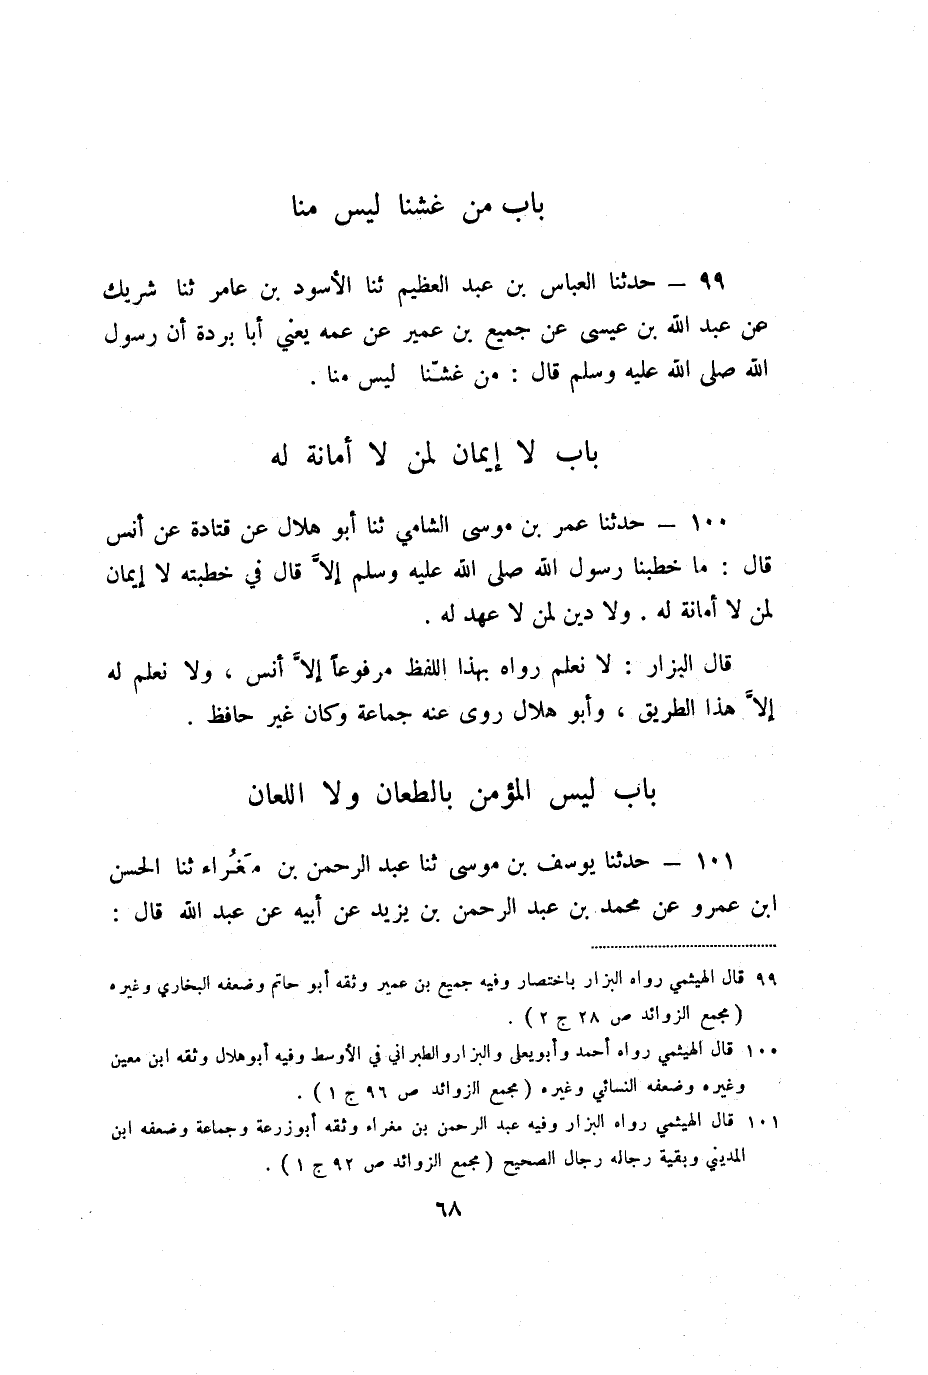 باب من غشنا ليس منا
٩٩ – حدثنا العباس بن عبد العظيم ثنا الأسود بن عامر ثنا شريك
عن عبد الله بن عيسى عن جميع بن عمير عن عمه يعني أبا بردة أن رسول
الله صلى الله عليه وسلم قال : من غشّنا ليس منا .
باب لا إيمان لمن لا أمانة له
١٠٠ – حدثنا عمر بن موسى الشامي ثنا أبو هلال عن قتادة عن أنس
قال : ما خطبنا رسول الله صلى الله عليه وسلم إلاَّ قال في خطبته لا إيمان
لمن لا أمانة له . ولا دين لمن لا عهد له .
قال البزار : لا نعلم رواه بهذا اللفظ مرفوعاً إلاَّ أنس ، ولا نعلم له
إلاَّ هذا الطريق ، وأبو هلال روى عنه جماعة وكان غير حافظ .
باب ليس المؤمن بالطعان ولا اللعان
١٠١ – حدثنا يوسف بن موسى ثنا عبد الرحمن بن مَغُراء ثنا الحسن
ابن عمرو عن محمد بن عبد الرحمن بن يزيد عن أبيه عن عبد الله قال :
٩٩ قال الهيثمي رواه البزار باختصار وفيه جميع بن عمير وثقه أبو حاتم وضعفه البخاري وغيره
( مجمع الزوائد ص ٢٨ ج ٢ ) .
١٠٠ قال الهيثمي رواه أحمد وأبويعلى والبزار والطبراني في الأوسط وفيه أبوهلال وثقه ابن معين
وغيره وضعفه النسائي وغيره ( مجمع الزوائد ص ٩٦ ج ١ ) .
١٠١ قال الهيثمي رواه البزار وفيه عبد الرحمن بن مغراء وثقه أبوزرعة وجماعة وضعفه ابن
المديني وبقية رجاله رجال الصحيح ( مجمع الزوائد ص ٩٢ ج ١ ) .
٦٨